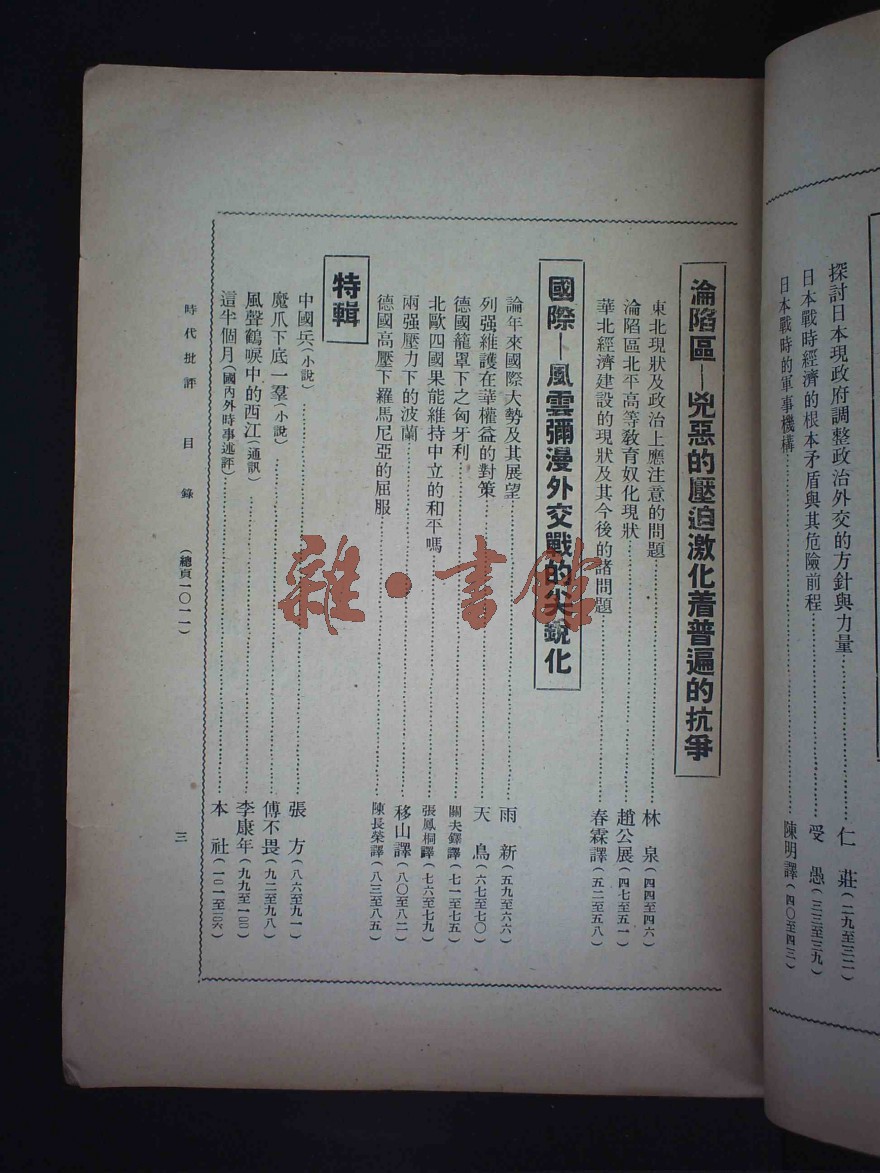 探討日本現政府調整政治外交的方針與力量……仁莊(二九至三二)
日本戰時經濟的根本矛盾與其危險前程……受愚(三三至三九)
日本戰時的軍事機構……陳明譯(四〇至四三)
淪陷區—兇惡的壓迫激化着普遍的抗爭
東北現狀及政治上應注意的問題……林泉(四四至四六)
淪陷區北平高等教育奴化現狀……趙公展(四七至五一)
華北經濟建設的現狀及其今後的諸問題……春霖譯(五二至五八)
國際—風雲彌漫外交戰的尖銳化
論年來國際大勢及其展望……雨新(五九至六六)
列强維護在華權益的對策……天鳥(六七至七〇)
德國籠罩下之匈牙利……關夫鐸譯(七一至七五)
北歐四國果能維持中立的和平嗎……張鳳桐譯(七六至七九)
兩强壓力下的波蘭……移山譯(八〇至八二)
德國高壓下羅馬尼亞的屈服……陳長榮譯(八三至八五)
特輯
中國兵(小說)……張方(八六至九一)
魔爪下底一羣(小說)……傅不畏(九二至九八)
風聲鶴唳中的西江(通訊)……李康年(九九至一〇〇)
這半個月(國內外時事述評)……本社(一〇一至一〇六)
時代批評 目錄 (總頁一〇一一) 三
雜·書館